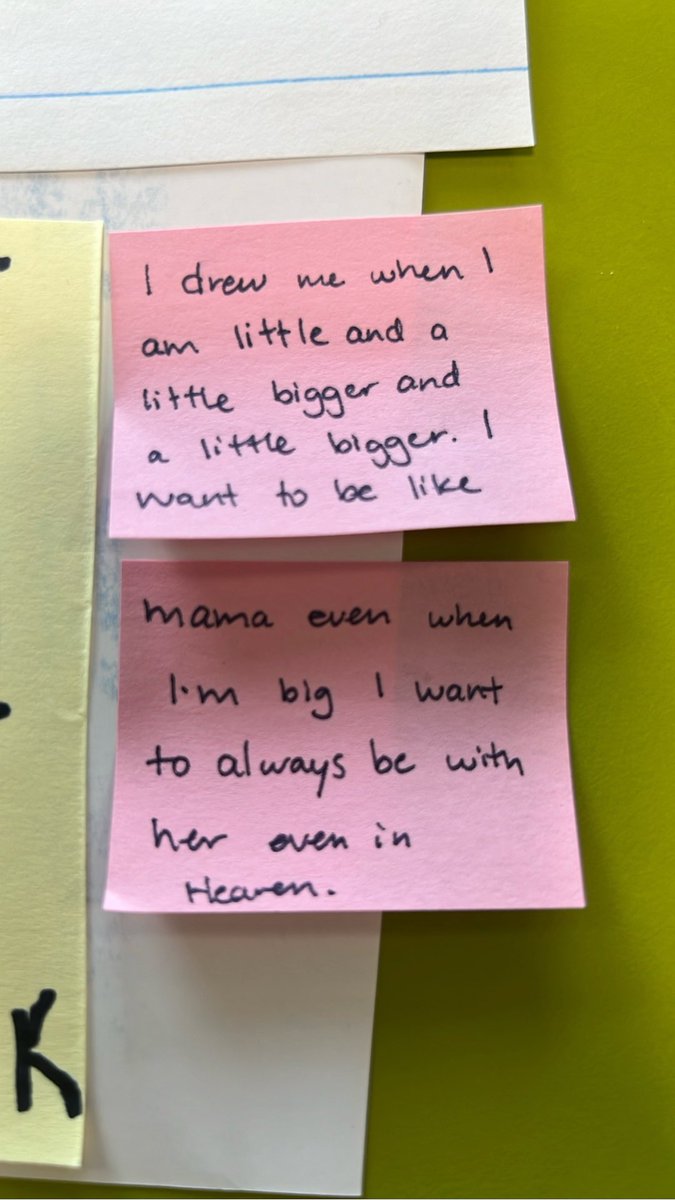 I drew me when I
am little and a
little bigger and
a little bigger. I
want to be like
mama even when
I'm big I want
to always be with
her even in
Heaven.
K